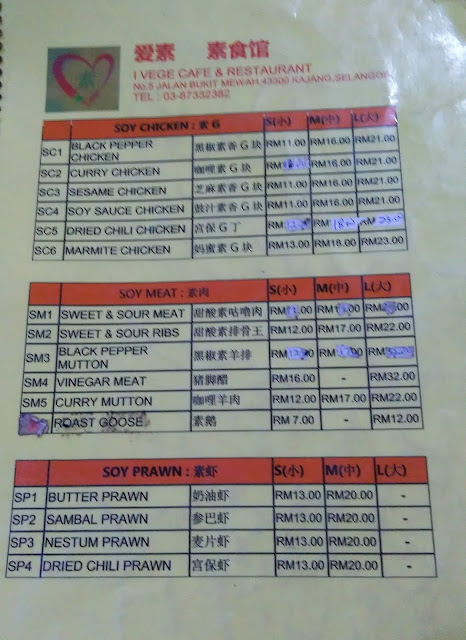 爱素 素食馆
I VEGE CAFE & RESTAURANT
No.5 JALAN BUKIT MEWAH,43300 KAJANG,SELANGOR
TEL : 03-87332382
SOY CHICKEN : 素 G S(小) M(中) L(大)
SC1 BLACK PEPPER CHICKEN 黑椒素香 G 块 RM11.00 RM16.00 RM21.00
SC2 CURRY CHICKEN 咖哩素 G 块 RM RM16.00 RM21.00
SC3 SESAME CHICKEN 芝麻素香 G 块 RM11.00 RM16.00 RM21.00
SC4 SOY SAUCE CHICKEN 豉汁素香 G 块 RM11.00 RM16.00 RM21.00
SC5 DRIED CHILI CHICKEN 宫保 G 丁 RM RM RM
SC6 MARMITE CHICKEN 妈蜜素 G 块 RM13.00 RM18.00 RM23.00
SOY MEAT : 素肉 S(小) M(中) L(大)
SM1 SWEET & SOUR MEAT 甜酸素咕噜肉 RM RM RM
SM2 SWEET & SOUR RIBS 甜酸素排骨王 RM12.00 RM17.00 RM22.00
SM3 BLACK PEPPER MUTTON 黑椒素羊排 RM RM RM
SM4 VINEGAR MEAT 猪脚醋 RM16.00 - RM32.00
SM5 CURRY MUTTON 咖哩羊肉 RM12.00 RM17.00 RM22.00
ROAST GOOSE 素鹅 RM 7.00 - RM12.00
SOY PRAWN : 素虾 S(小) M(中) L(大)
SP1 BUTTER PRAWN 奶油虾 RM13.00 RM20.00 -
SP2 SAMBAL PRAWN 参巴虾 RM13.00 RM20.00 -
SP3 NESTUM PRAWN 麦片虾 RM13.00 RM20.00 -
SP4 DRIED CHILI PRAWN 宫保虾 RM13.00 RM20.00 -